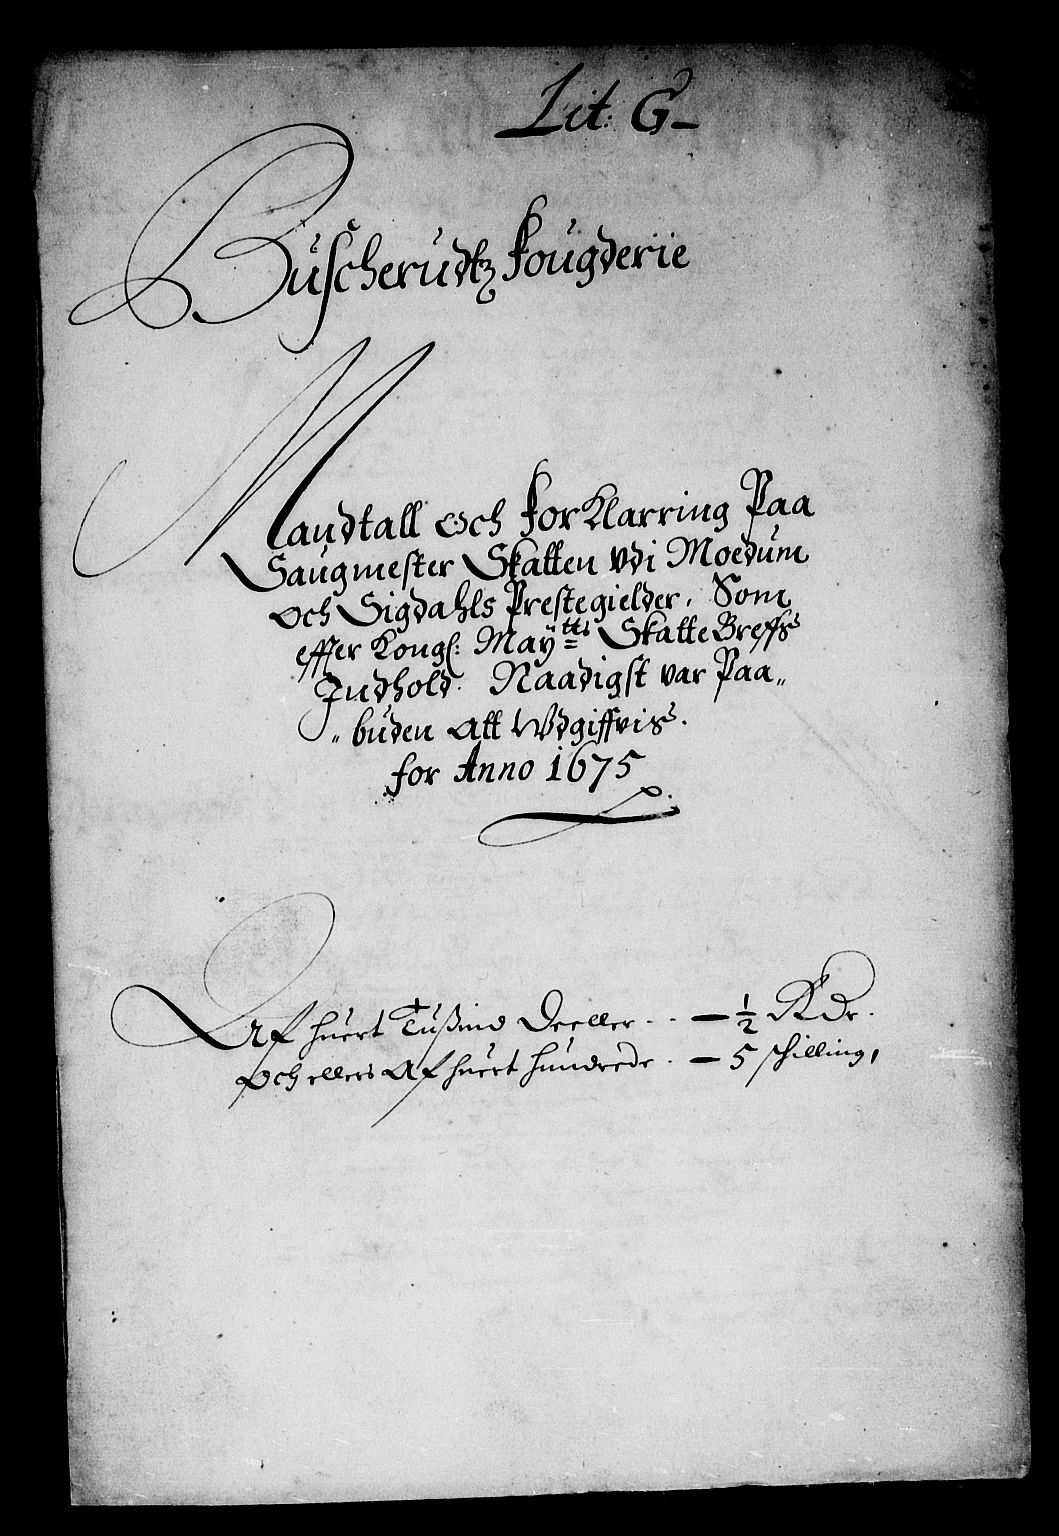 Lit: G
Buscherudtz fougderie
Mandtall och forKlarring Paa
Saugmester Skatten vdi Moedum
och Sigdahls Prestegielder, Som
effter Kongl: Maÿtts SkatteBreffs
Indhold. Naadigst var Paa„
„buden Att Wdgiffvis.
for Anno 1675
Af huert Tußind Deeller - - — ½ Rdr.
Och ellers Af huert hundrede - — 5 schilling,